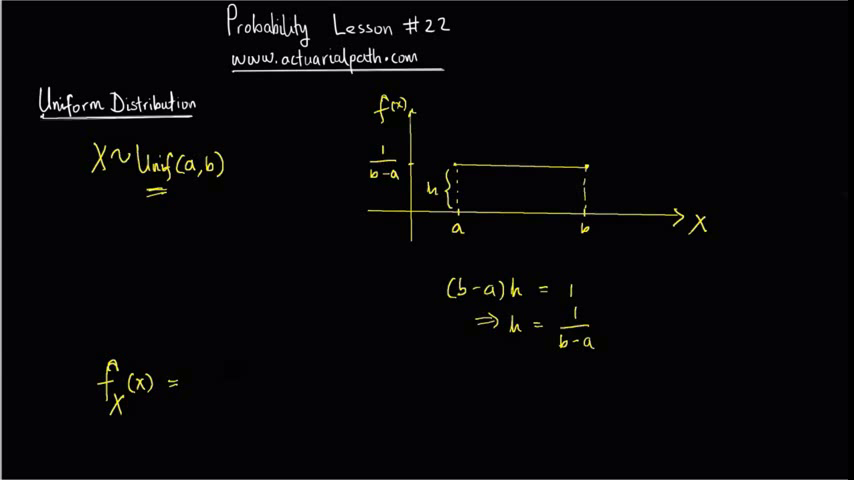 Probability Lesson #22
www.actuarialpath.com
Uniform Distribution
X ~ Unif(a,b)
f(x)
1/(b-a)
h
a
b
X
(b-a)h = 1
⇒ h = 1/(b-a)
f_X(x) =